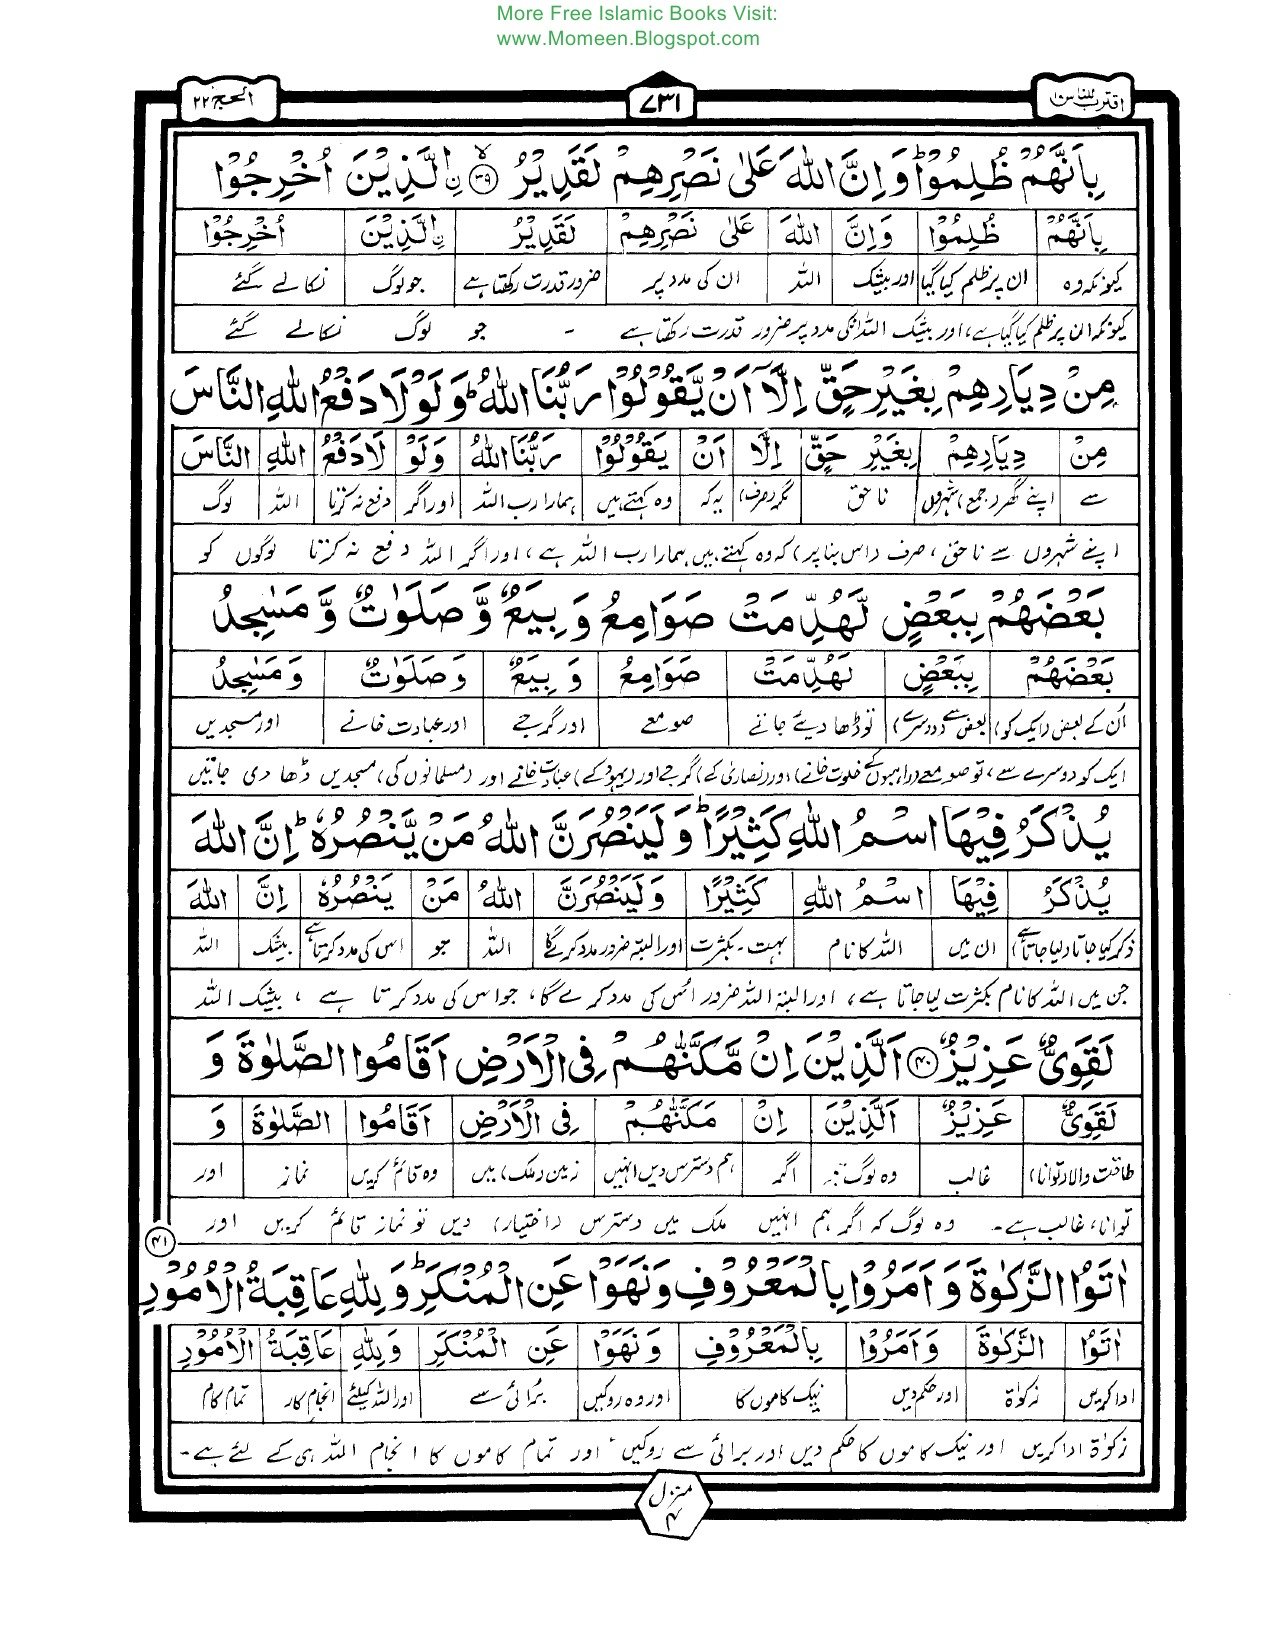 More Free Islamic Books Visit:
www.Momeen.Blogspot.com
اقترب للناس ١٧
٧٣١
الحج ٢٢
بِاَنَّهُمْ ظُلِمُوْا ؕ وَ اِنَّ اللّٰهَ عَلٰى نَصْرِهِمْ لَقَدِیْرُ ۙ﴿۳۹﴾ نِ الَّذِیْنَ اُخْرِجُوْا
بِاَنَّهُمْ ظُلِمُوْا وَاِنَّ اللّٰهَ عَلٰى نَصْرِهِمْ لَقَدِیْرُ نِ الَّذِیْنَ اُخْرِجُوْا
کیونکہ وہ ان پر ظلم کیا گیا اور بیشک اللہ ان کی مدد پر ضرور قدرت رکھتا ہے جو لوگ نکالے گئے
کیونکہ ان پر ظلم کیا گیا ہے، اور بیشک اللہ انکی مدد پر ضرور قدرت رکھتا ہے - جو لوگ نکالے گئے
مِنْ دِیَارِهِمْ بِغَیْرِ حَقٍّ اِلَّاۤ اَنْ یَّقُوْلُوْا رَبُّنَا اللّٰهُ ؕ وَ لَوْ لَا دَفْعُ اللّٰهِ النَّاسَ
مِنْ دِیَارِهِمْ بِغَیْرِ حَقٍّ اِلَّا اَنْ یَقُوْلُوْا رَبُّنَا اللّٰهُ وَلَوْ لَا دَفْعُ اللّٰهِ النَّاسَ
سے اپنے گھر (جمع) شہروں ناحق مگر (صرف) یہ کہ وہ کہتے ہیں ہمارا رب اللہ اور اگر دفع نہ کرتا اللہ لوگ
اپنے شہروں سے ناحق، صرف (اس بنا پر) کہ وہ کہتے ہیں ہمارا رب اللہ ہے، اور اگر اللہ دفع نہ کرتا لوگوں کو
بَعْضَهُمْ بِبَعْضٍ لَّهُدِّمَتْ صَوَامِعُ وَ بِیَعٌ وَّ صَلَوٰتٌ وَّ مَسٰجِدُ
بَعْضَهُمْ بِبَعْضٍ لَهُدِّمَتْ صَوَامِعُ وَ بِیَعٌ وَ صَلَوٰتٌ وَ مَسٰجِدُ
اُن کے بعض (ایک کو) بعض سے (دوسرے) تو ڈھا دیئے جاتے صومعے اور گرجے اور عبادت خانے اور مسجدیں
ایک کو دوسرے سے، تو صومعے (راہبوں کے خلوت خانے) اور (نصاریٰ کے) گرجے اور (یہود کے) عبادت خانے اور (مسلمانوں کی) مسجدیں ڈھا دی جاتیں
یُذْكَرُ فِیْهَا اسْمُ اللّٰهِ كَثِیْرًا ؕ وَ لَیَنْصُرَنَّ اللّٰهُ مَنْ یَّنْصُرُهٗ ؕ اِنَّ اللّٰهَ
یُذْكَرُ فِیْهَا اسْمُ اللّٰهِ كَثِیْرًا وَلَیَنْصُرَنَّ اللّٰهُ مَنْ یَنْصُرُهٗ اِنَّ اللّٰهَ
ذکر کیا جاتا (لیا جاتا ہے) ان میں اللہ کا نام بہت - بکثرت اور البتہ ضرور مدد کرے گا اللہ جو اس کی مدد کرتا ہے بیشک اللہ
جن میں اللہ کا نام بکثرت لیا جاتا ہے، اور البتہ اللہ ضرور اس کی مدد کرے گا، جو اس کی مدد کرتا ہے ، بیشک اللہ
لَقَوِیٌّ عَزِیْزٌ ﴿۴۰﴾ اَلَّذِیْنَ اِنْ مَّكَّنّٰهُمْ فِی الْاَرْضِ اَقَامُوا الصَّلٰوةَ وَ
لَقَوِیٌّ عَزِیْزٌ اَلَّذِیْنَ اِنْ مَكَّنّٰهُمْ فِی الْاَرْضِ اَقَامُوا الصَّلٰوةَ وَ
طاقت والا (توانا) غالب وہ لوگ جو اگر ہم دسترس دیں انہیں زمین (ملک) میں وہ قائم کریں نماز اور
توانا، غالب ہے۔ وہ لوگ کہ اگر ہم انہیں ملک میں دسترس (اختیار) دیں تو نماز قائم کریں اور
اٰتَوُا الزَّكٰوةَ وَ اَمَرُوْا بِالْمَعْرُوْفِ وَ نَهَوْا عَنِ الْمُنْكَرِ ؕ وَ لِلّٰهِ عَاقِبَةُ الْاُمُوْرِ ﴿۴۱﴾
اٰتَوُا الزَّكٰوةَ وَاَمَرُوْا بِالْمَعْرُوْفِ وَنَهَوْا عَنِ الْمُنْكَرِ وَلِلّٰهِ عَاقِبَةُ الْاُمُوْرِ
ادا کریں زکوٰۃ اور حکم دیں نیک کاموں کا اور وہ روکیں برائی سے اور اللہ کیلئے انجام کار تمام کام
زکوٰۃ ادا کریں اور نیک کاموں کا حکم دیں اور برائی سے روکیں اور تمام کاموں کا انجام اللہ ہی کے لئے ہے۔
منزل ۴